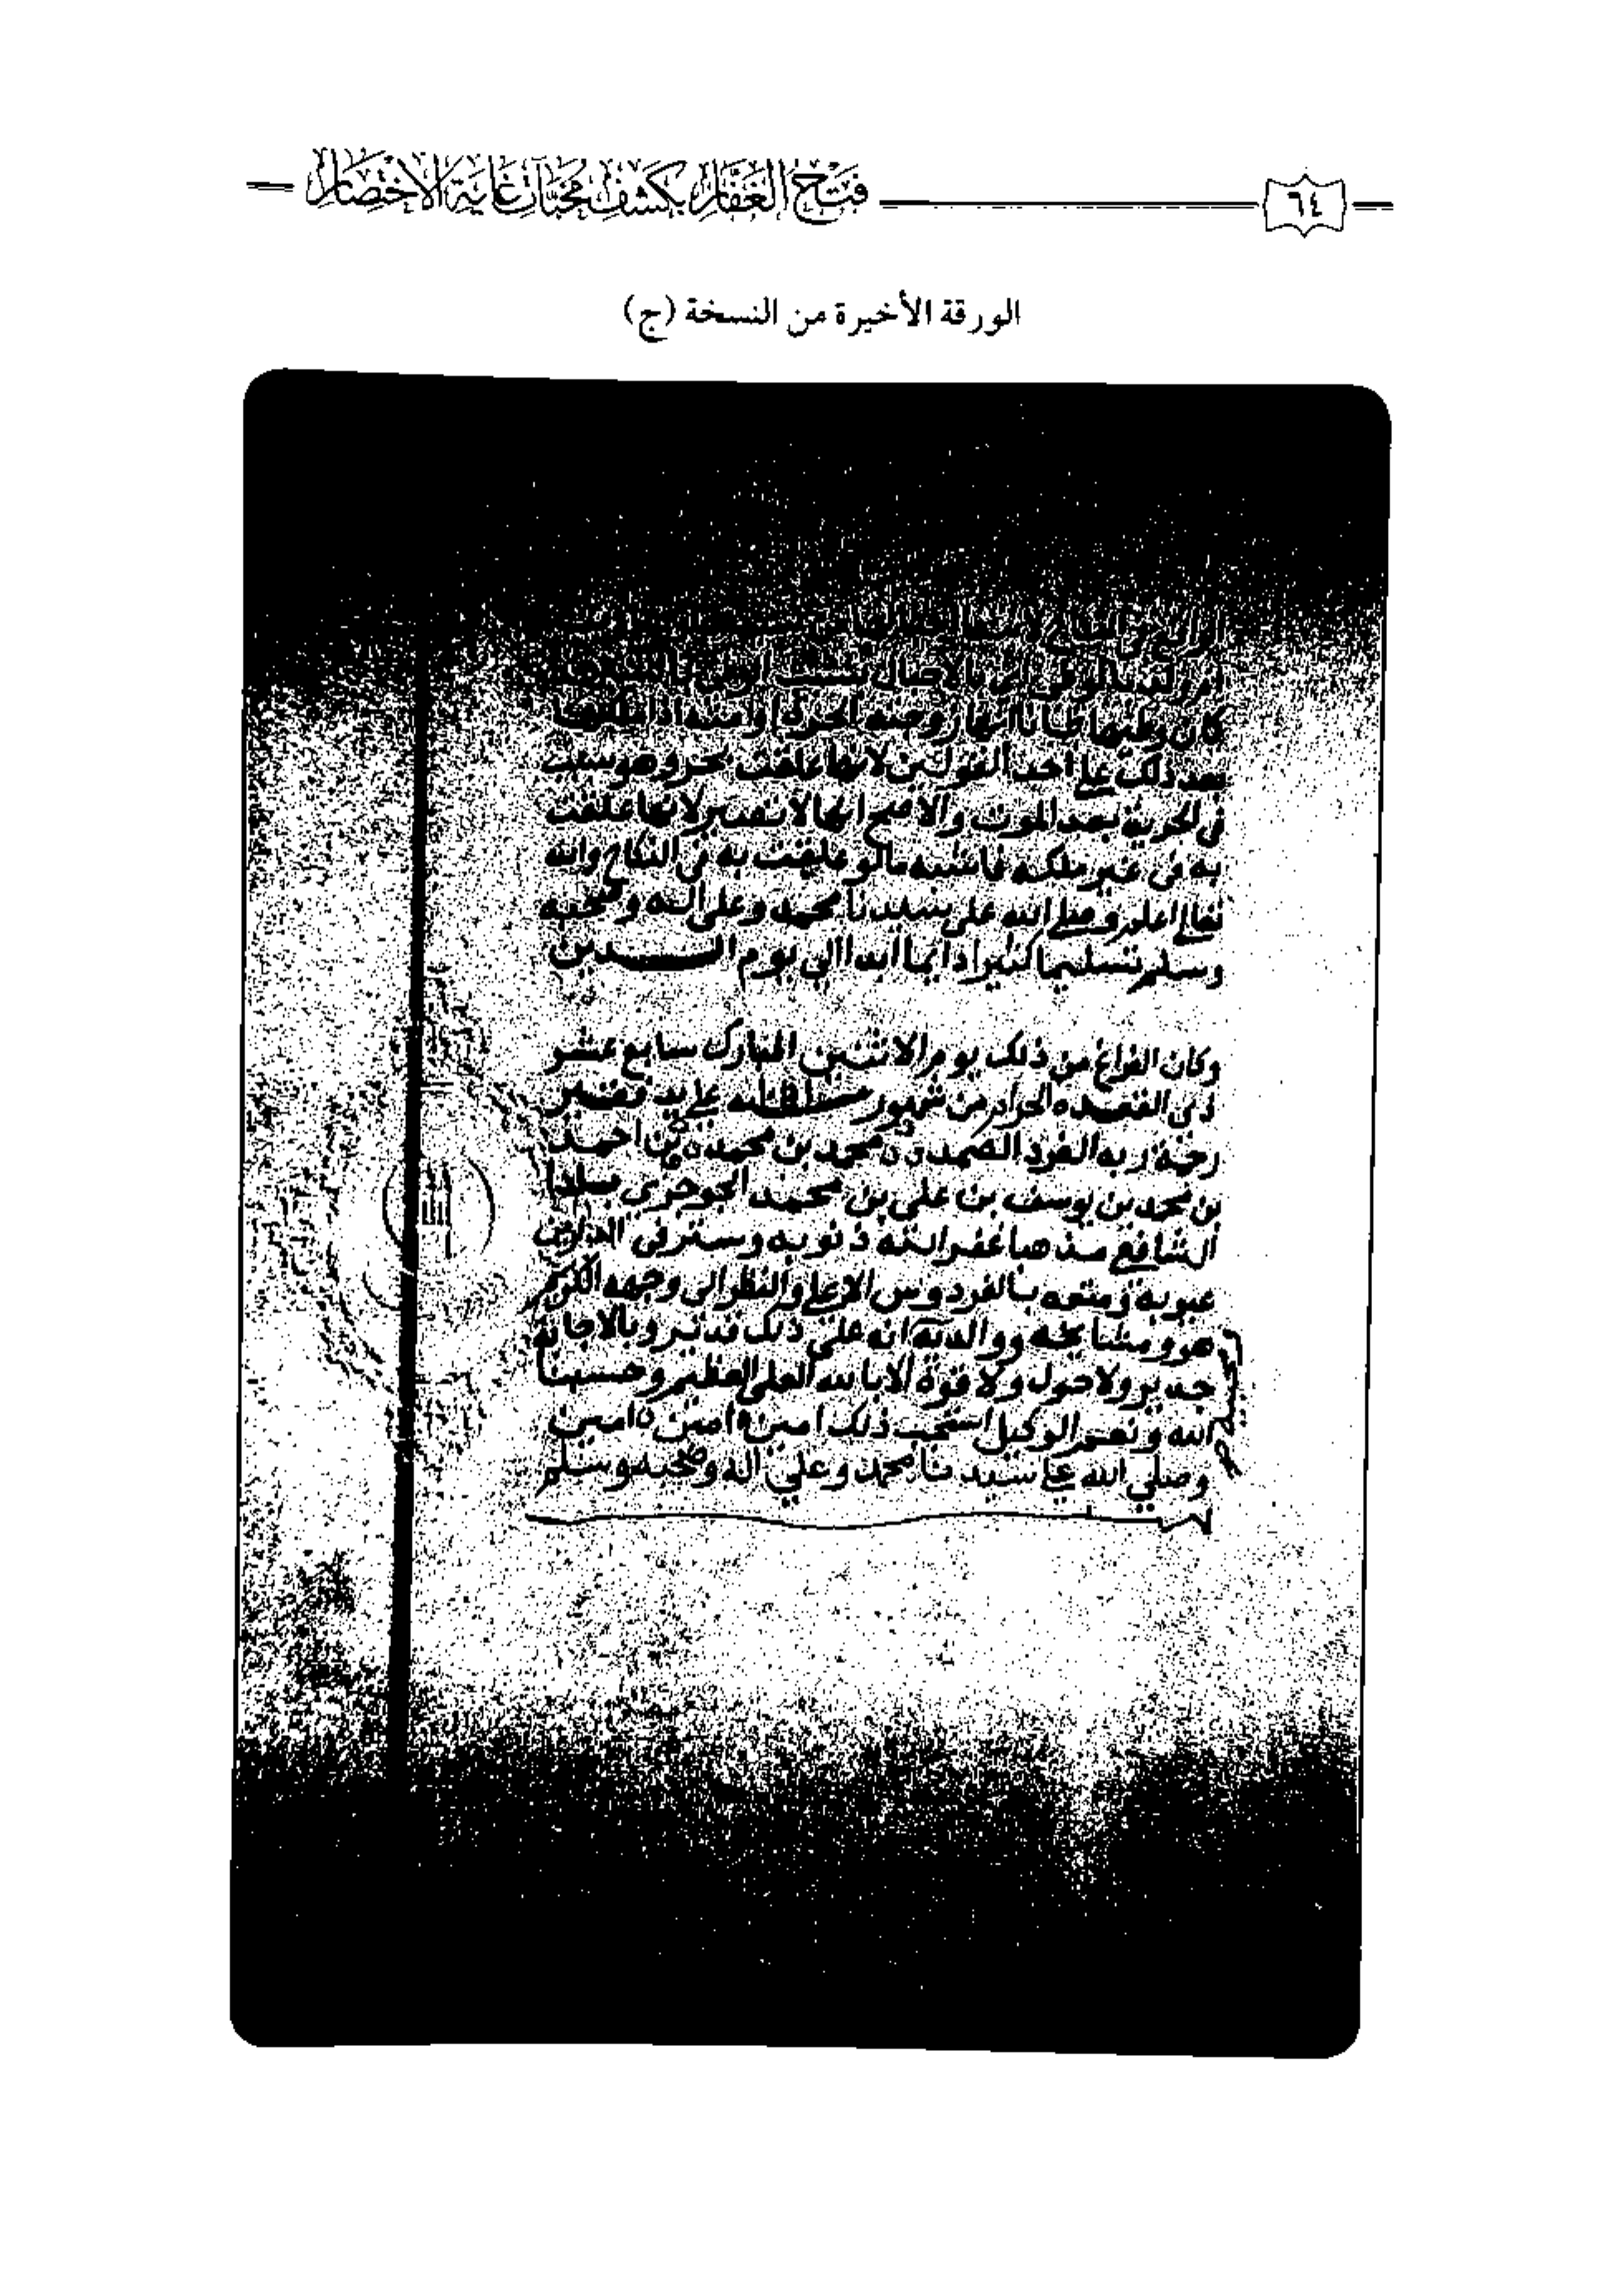 ٦٤
فتح الغفار بكشف مخبآت غاية الاختصار
الورقة الأخيرة من النسخة (ج)
كان وطئها ظانا انها زوجته الحرة او امته اذا ملكها
بعد ذلك على احد القولين لانها علقت بحر وهو سبب
في الحرية بعد الموت والاصح انها لا تصير لانها علقت
به في غير ملكه فاشبه مالو علقت به في النكاح والله
تعالى اعلم وصلى الله على سيدنا محمد وعلى اله وصحبه
وسلم تسليما كثيرا دايما ابدا الي يوم الدين
وكان الفراغ من ذلك يوم الاثنين المبارك سابع عشر
ذي القعده الحرام من شهور على يد فقير
رحمة ربه الفرد الصمد محمد بن محمد بن احمد
بن محمد بن يوسف بن علي بن محمد الجوجري
الشافعي مذهبا غفر الله ذنوبه وستر في الدارين
عيوبه ومتعه بالفردوس الاعلي والنظر الى وجهه الكريم
هو ومشايخه ووالديه انه على ذلك قدير وبالاجابة
جدير ولا حول ولا قوة الا بالله العلي العظيم وحسبنا
الله ونعم الوكيل استجب ذلك امين امين امين
وصلي الله على سيدنا محمد وعلي اله وصحبه وسلم